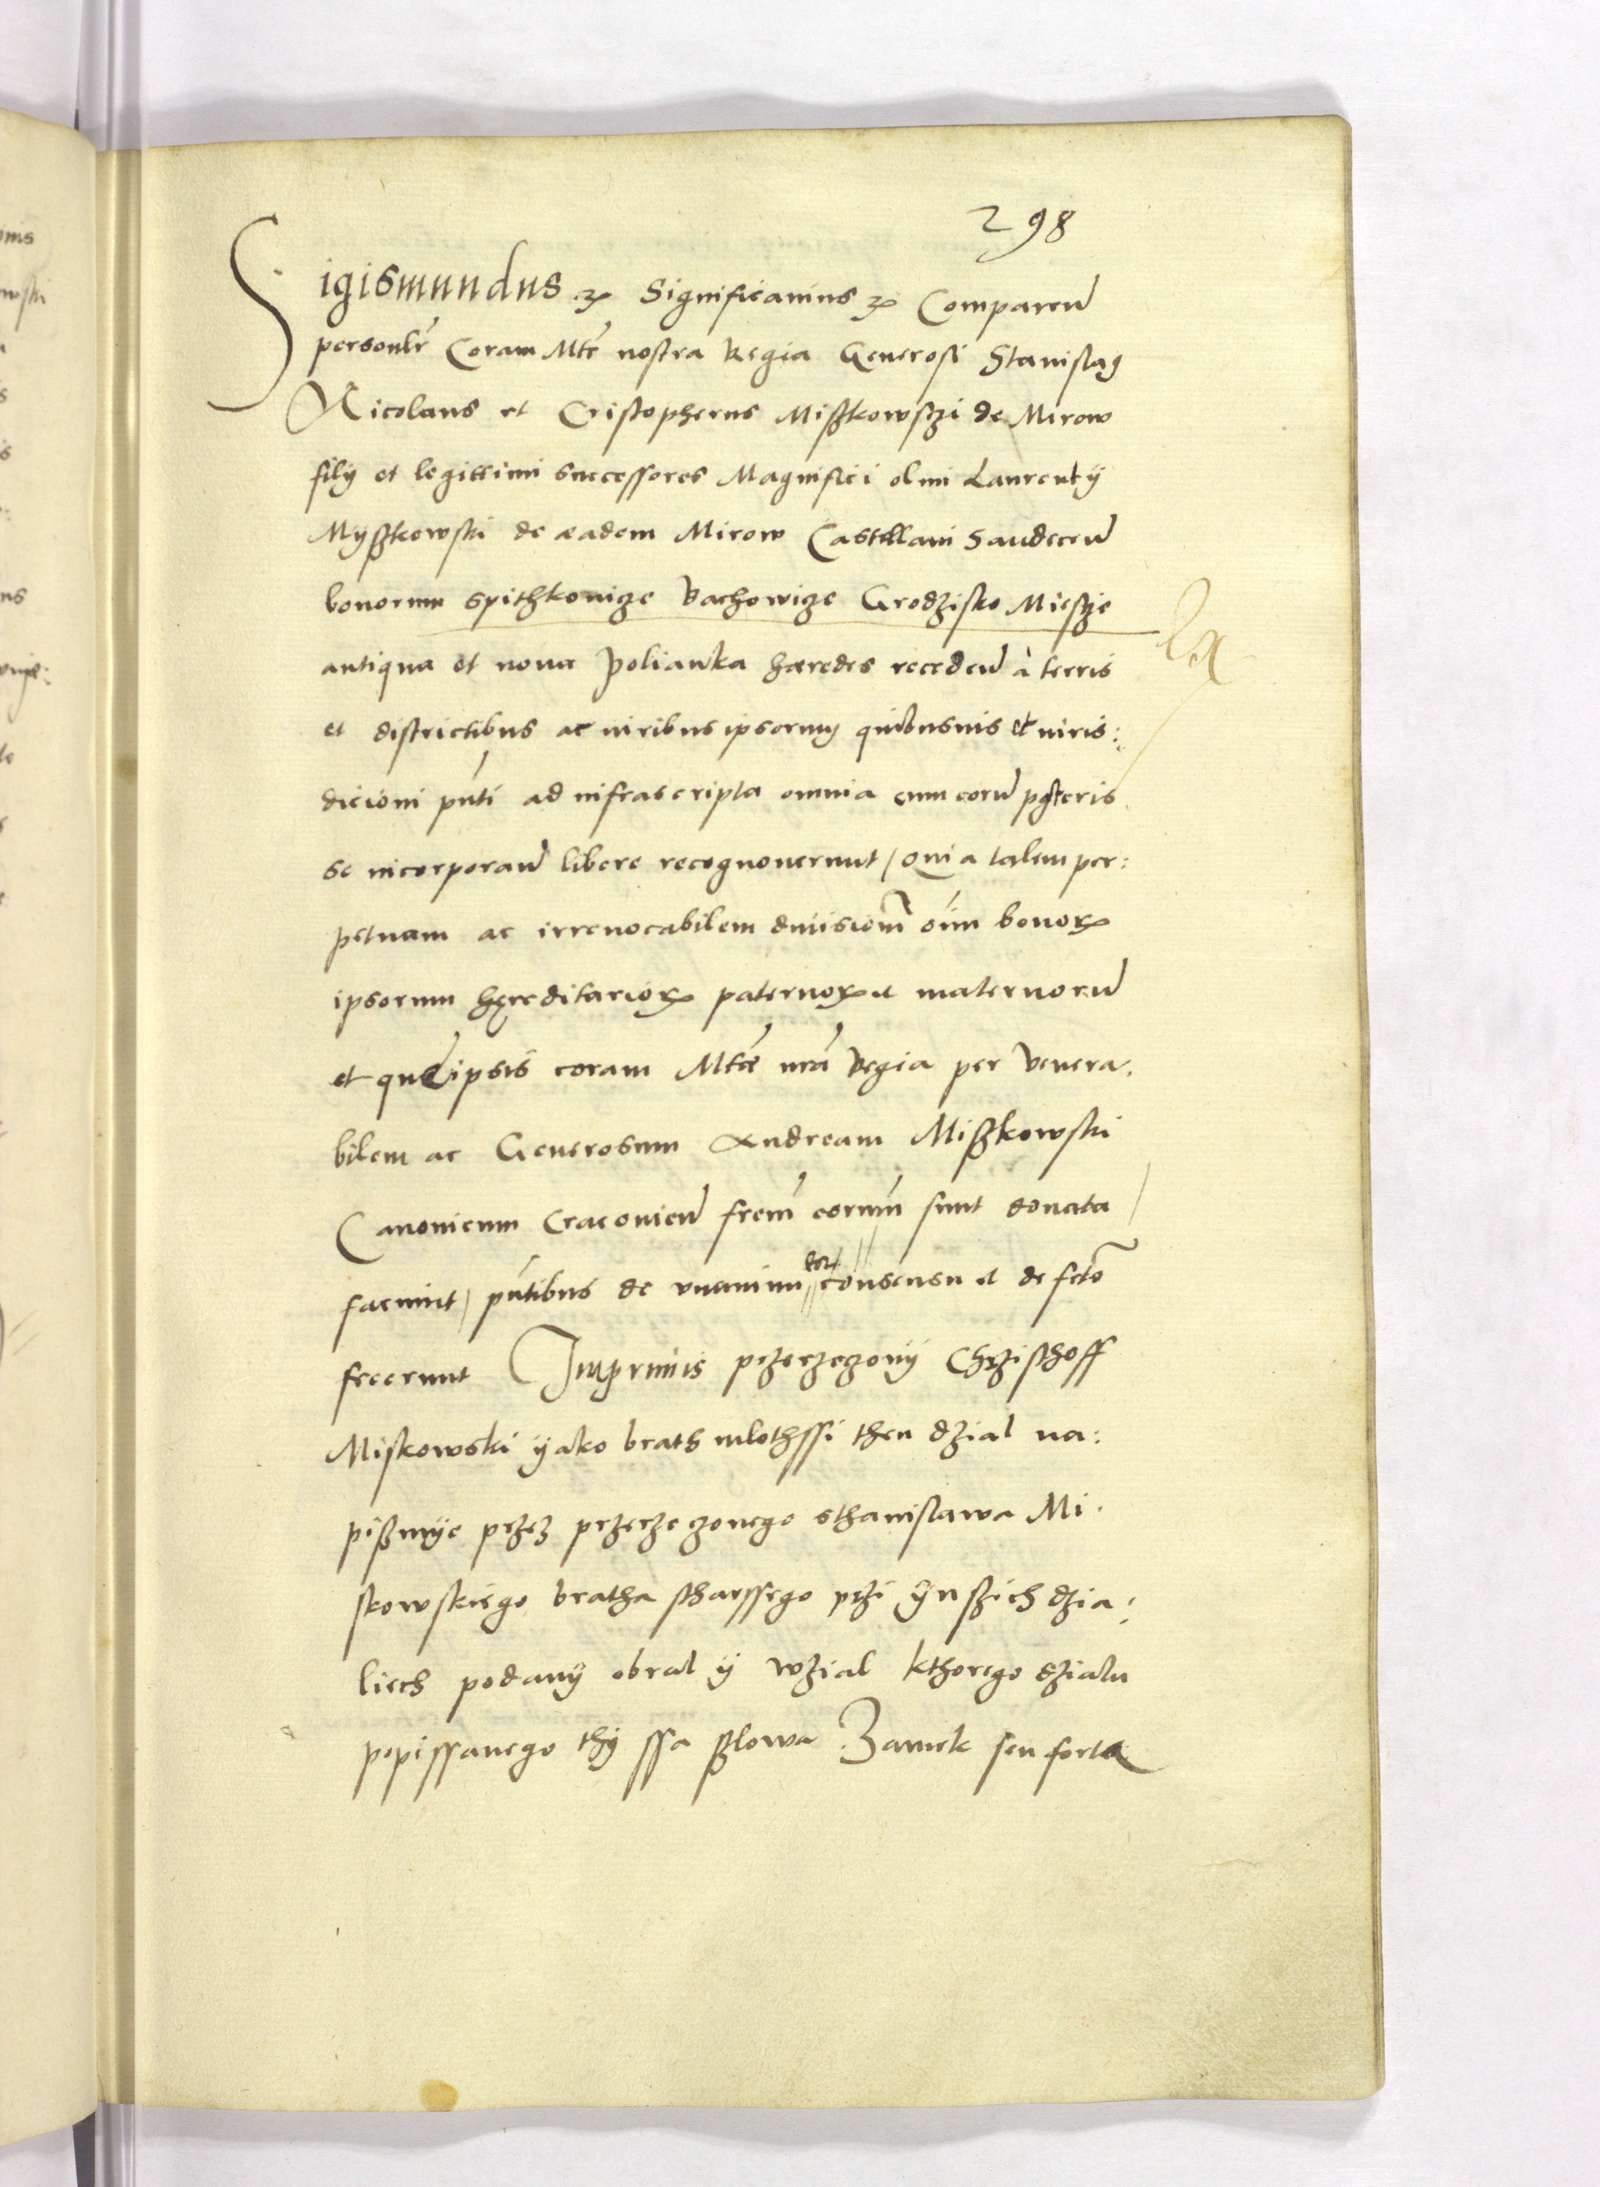 298
Sigismundus etc Significamus etc Comparen
personlr Coram Mte nostra Regia Generosi Stanislaus
Nicolaus et Cristopherus Mißkowsczi de Mirow
filij et legittimi successores Magnifici olim Laurentij
Myßkowski de eadem Mirow Castellani Sandecen
bonorum Spithkowicze Bachowicze Grodzisko Miescze
antiqua et noua Polianka hæredes receden à terris
et districtibus ac iuribus ipsorum quibusuis et iuris:
dicioni pnti ad infrascripta omnia cum eorum posteris
se incorporan libere recognouerunt / Quia talem per:
petuam ac irreuocabilem diuisionem oim bonorum
ipsorum hęreditariorum paternorum et maternorum
et que ipsis coram Mte nra Regia per Venera:
bilem ac Generosum Andream Mißkowski
Canonicum Cracouien frem eorum sunt donata /
faciunt / pntibus de vnanimi eor consensu et de fcto
fecerunt Imprimis przerzeczony Chrzisthoff
Miskowski yako brath mlothssi then dzial na:
pißmye przez przerzeczonego Sthanislawa Mi:
skowskiego bratha stharssego przi ynßich dzia:
liech podany obral y wzial kthorego dzialu
popissanego thy ssa ßlowa Zamek seu forta